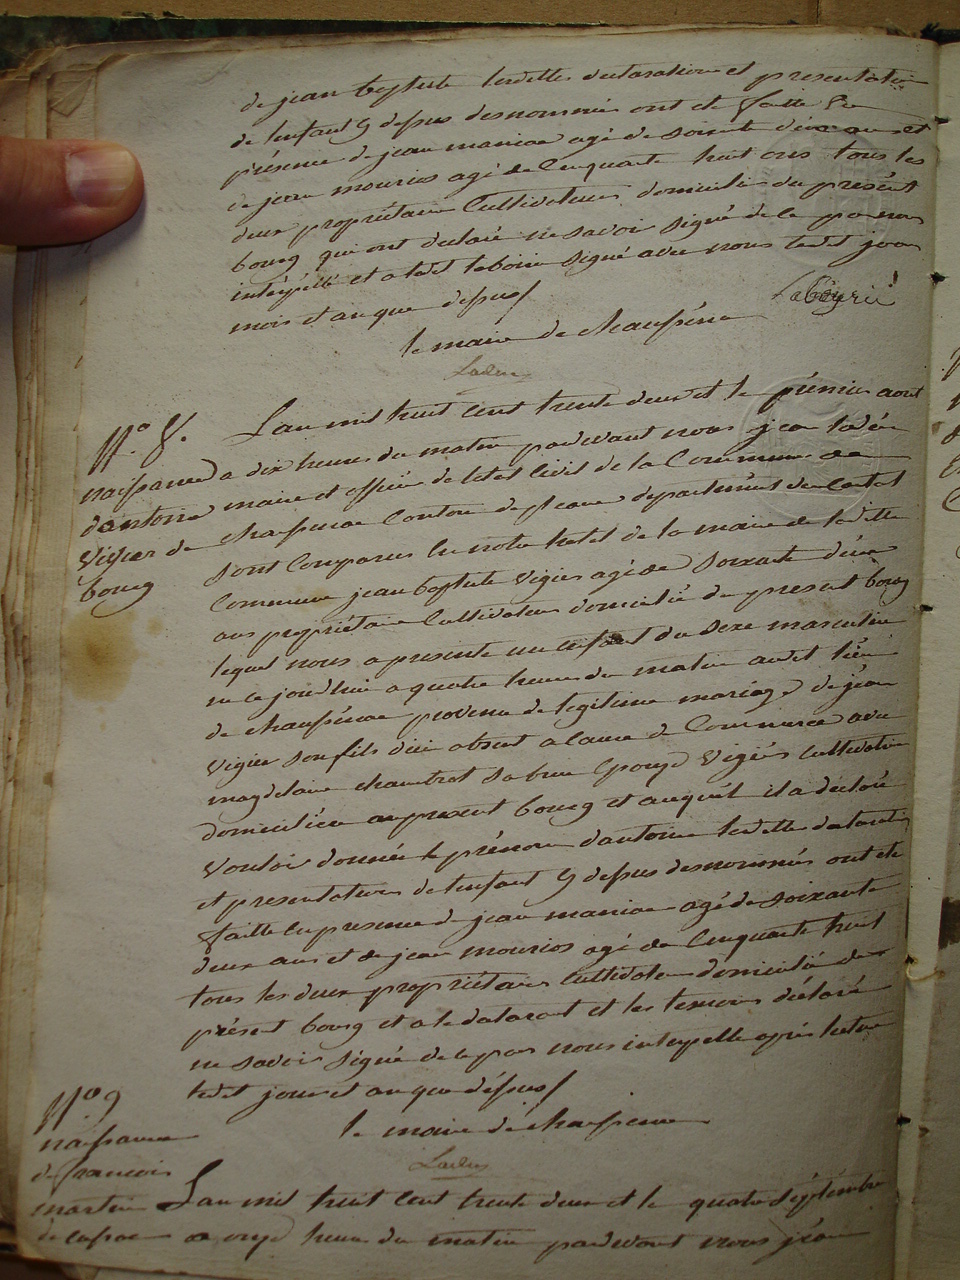 de jean baptiste lesdittes declaration et presentation
de lenfant cy dessus desnommé ont ete faitte En
présence de jean maniac agé de soixante deux ans et
de jean mourios agé de Cinquante huit ans tous les
deux propriétaire Cultivateurs domicilié du présent
bourg qui ont declaré ne savoir signé de ce par nous
intérpéllé et a ledit laboirie signé avec nous ledit jour
mois et an que dessus/
le maire de chaussénac Labeyrie
N.º 8. Lan mil huit Cent trente deux et le prémier aout
naissance a dix heures du matin pardevant nous jean
dantoine maire et officier de letat Civil de la Commune de
vigier de chaussenac Canton de pleaux departement du Cantal
bourg sont Comparus En notre hotel de la mairie de laditte
Commune jean baptiste vigier agé de soixante deux
ans propriétaire Cultivateur domicilié du present bourg
lequel nous a presenté un enfant du sexe masculin
né ce jourdhui a quatre heures du matin audit lieu
de chaussénac provenu de legitime mariage de jéan
vigier son fils d'ici absent a Cause de Commerce avec
magdelaine chambret sa brue Epouse vigiés cultivatrice
domiciliée au present bourg et auquél il a déclaré
vouloir donnée le prénom dantoine lesdittes declaration
et presentation de lenfant cy dessus desnommés ont eté
faitte En presence de jean maniac agé de soixante
deux ans et de jean mourios agé de Cinquante huit
tous les deux propriétaire Cultivateur domicilié du
présent bourg et a le declarant et les temoins déclaré
ne savoir signé de ce par nous interpelle aprés lecture
ledit jour et an que déssus/
le maire de chaussenac
N.º 9
naissance
de francois
martin Lan mil huit Cent trente deux et le quatre séptémbre
a onze heures du matin pardevant nous jéan